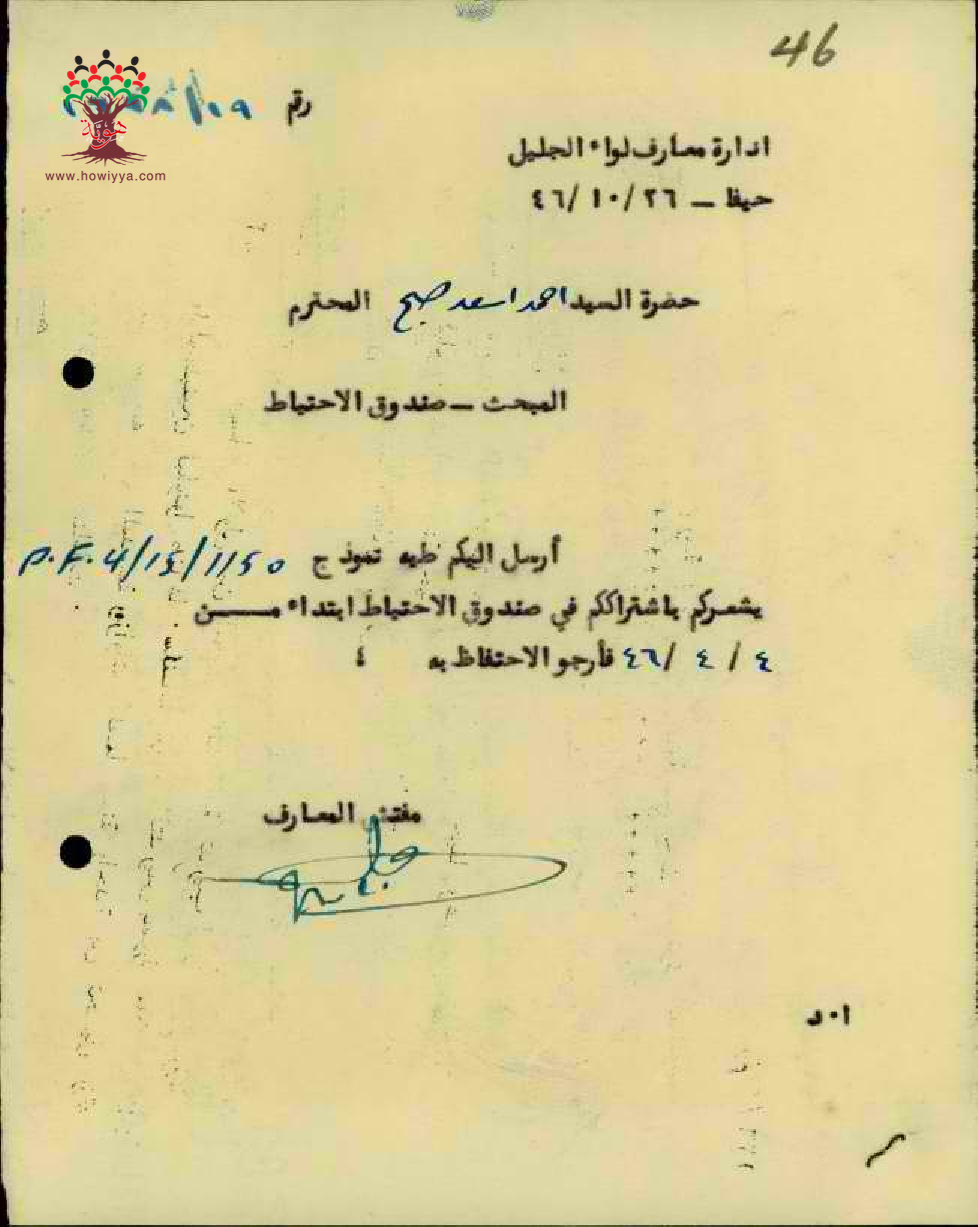 46
رقم
هوية
www.howiyya.com
ادارة معارف لواء الجليل
حيفا – ٢٦/ ١٠/ ٤٦
حضرة السيد احمد اسعد صبح المحترم
المبحث – صندوق الاحتياط
أرسل اليكم طيه نموذج P.F.4/14/1140
يشعركم باشتراككم في صندوق الاحتياط ابتداء من
٤ / ٤ /٤٦ فأرجو الاحتفاظ به ،
مفتش المعارف
ا٠د